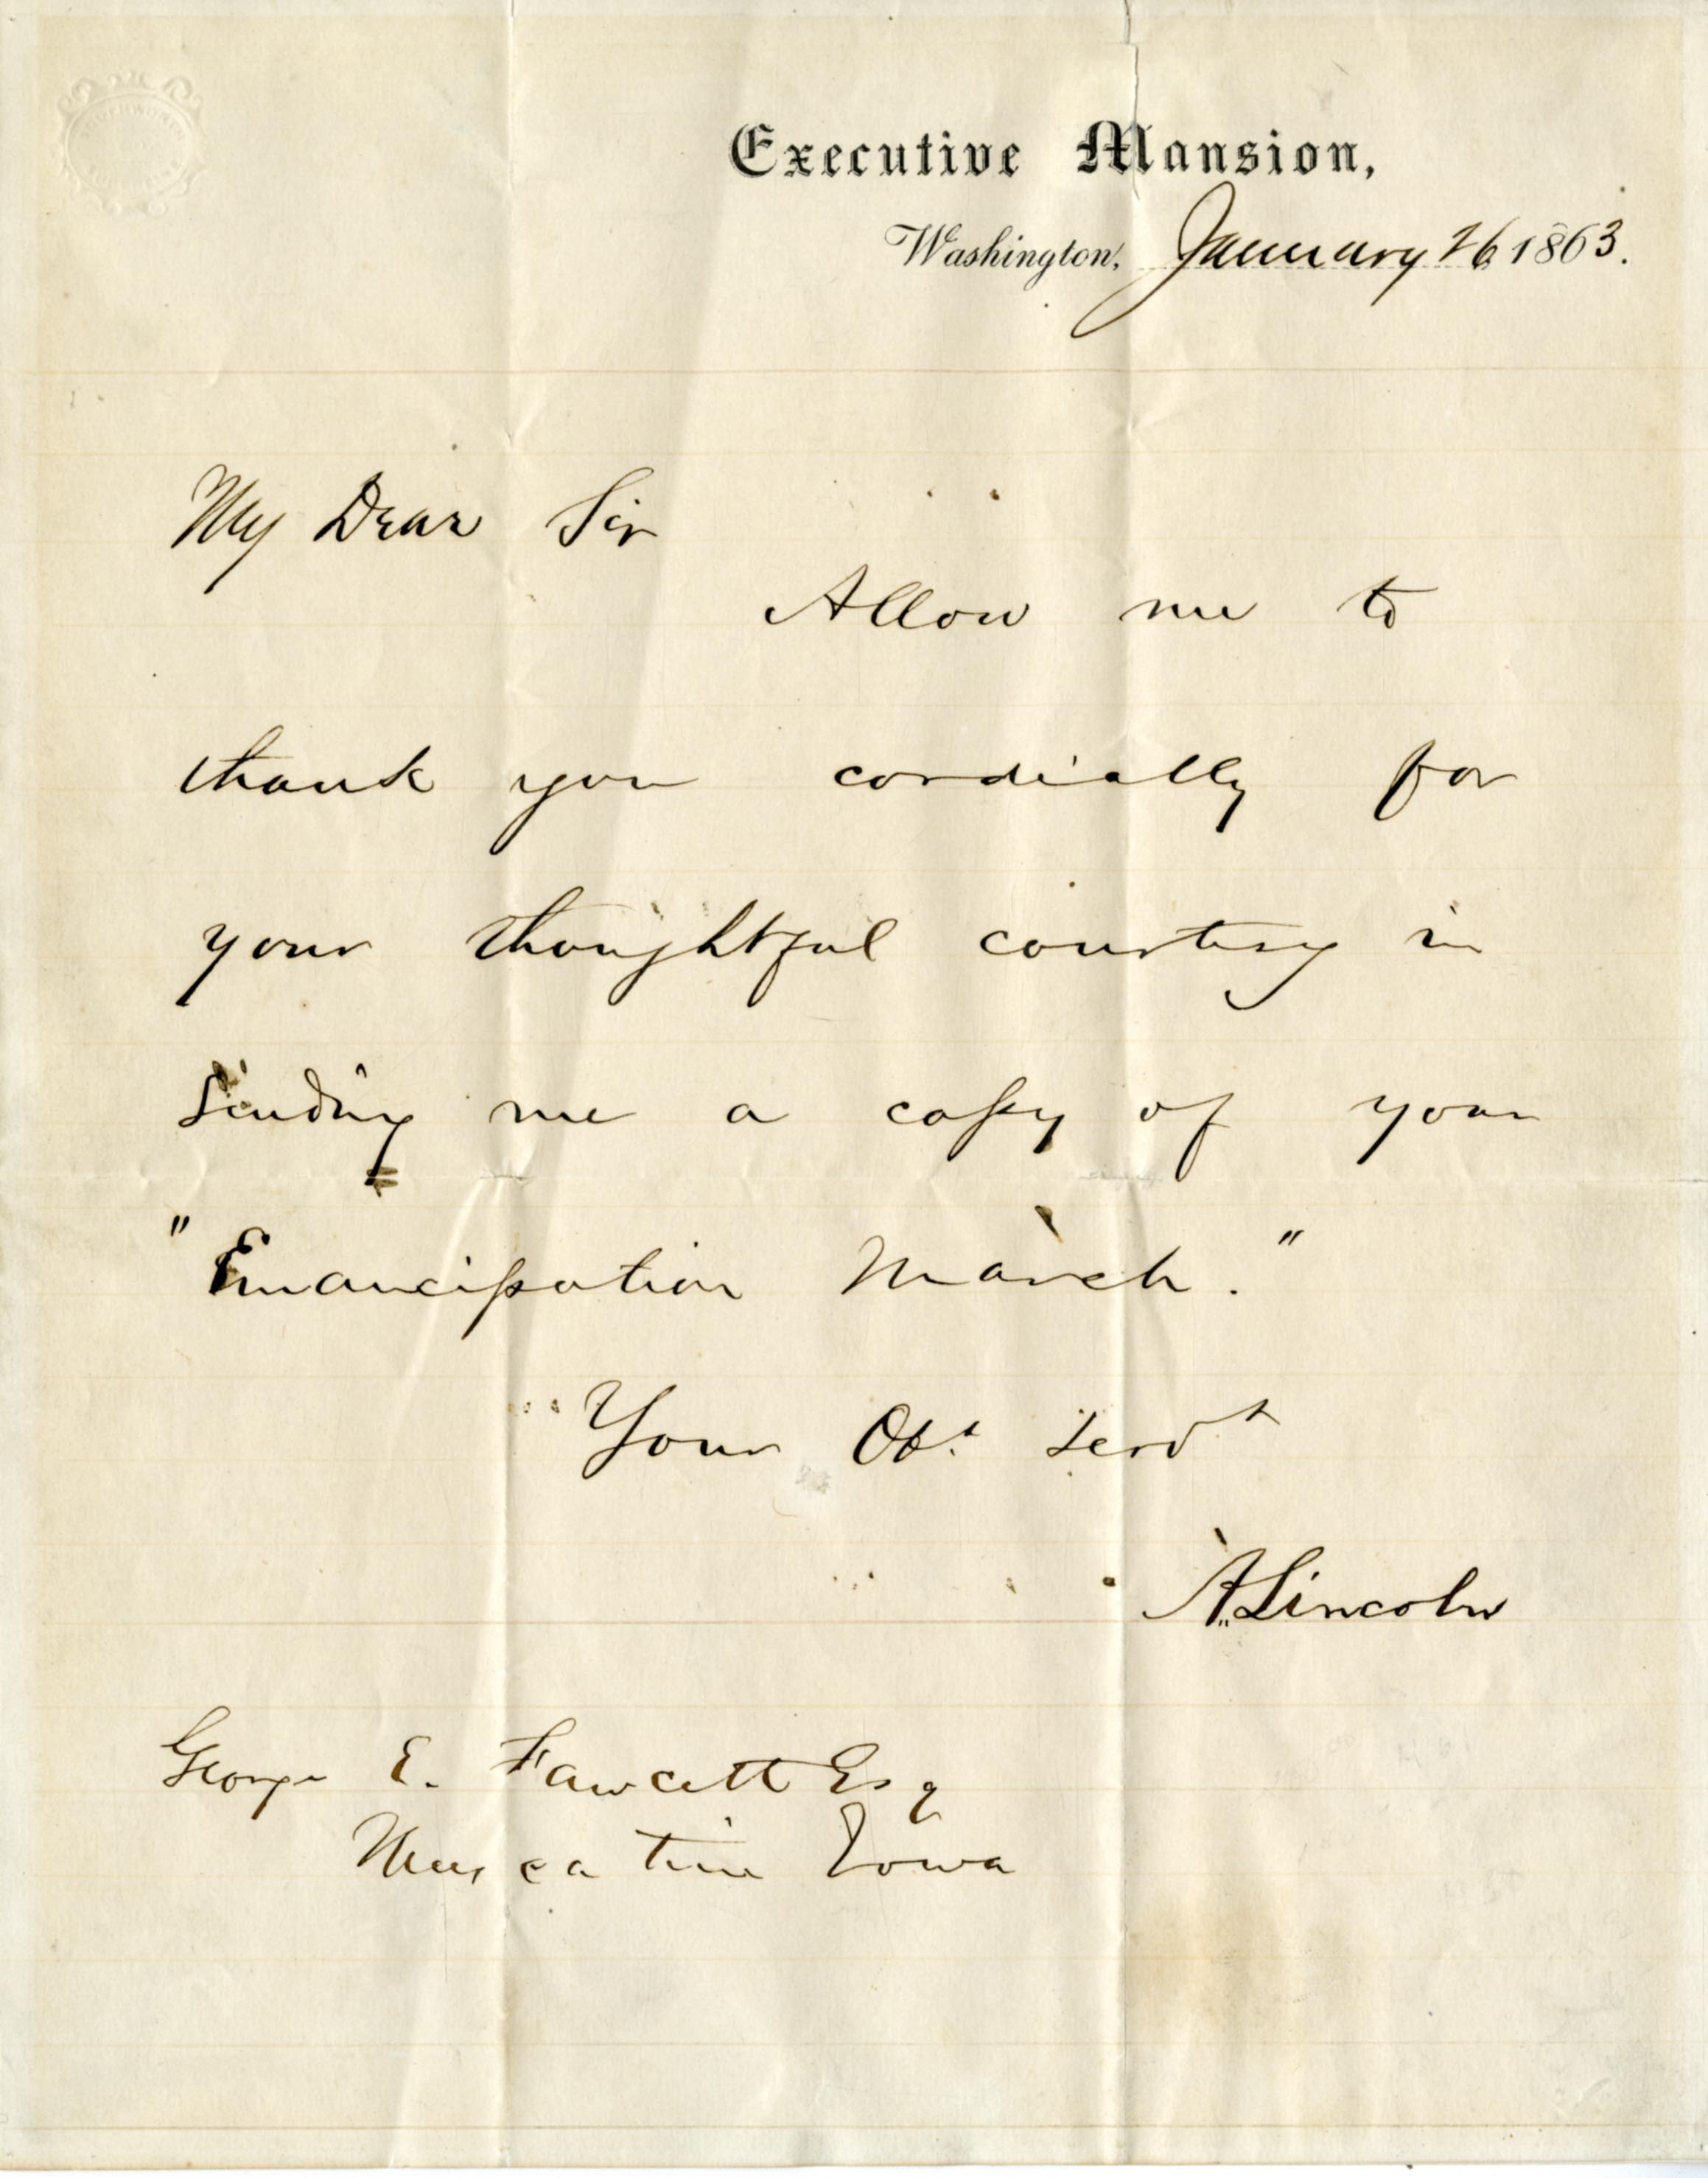 Executive Mansion,
Washington, January 26 1863.
My Dear Sir
Allow me to
thank you cordially for
your thoughtful courtesy in
sending me a copy of your
"Emancipation March."
Your Obt. servt
A. Lincoln
George E. Fawcett Esq
Muscatine Iowa